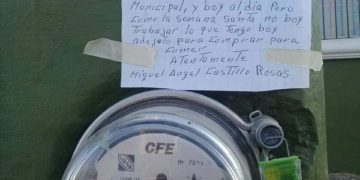 Municipal, y boy al dia Pero
como la semana santa no boy
Trabajar lo que Tengo boy
adejolo para comprar para
comer
Atentamente
Miguel Angel Castillo Rosas
CFE